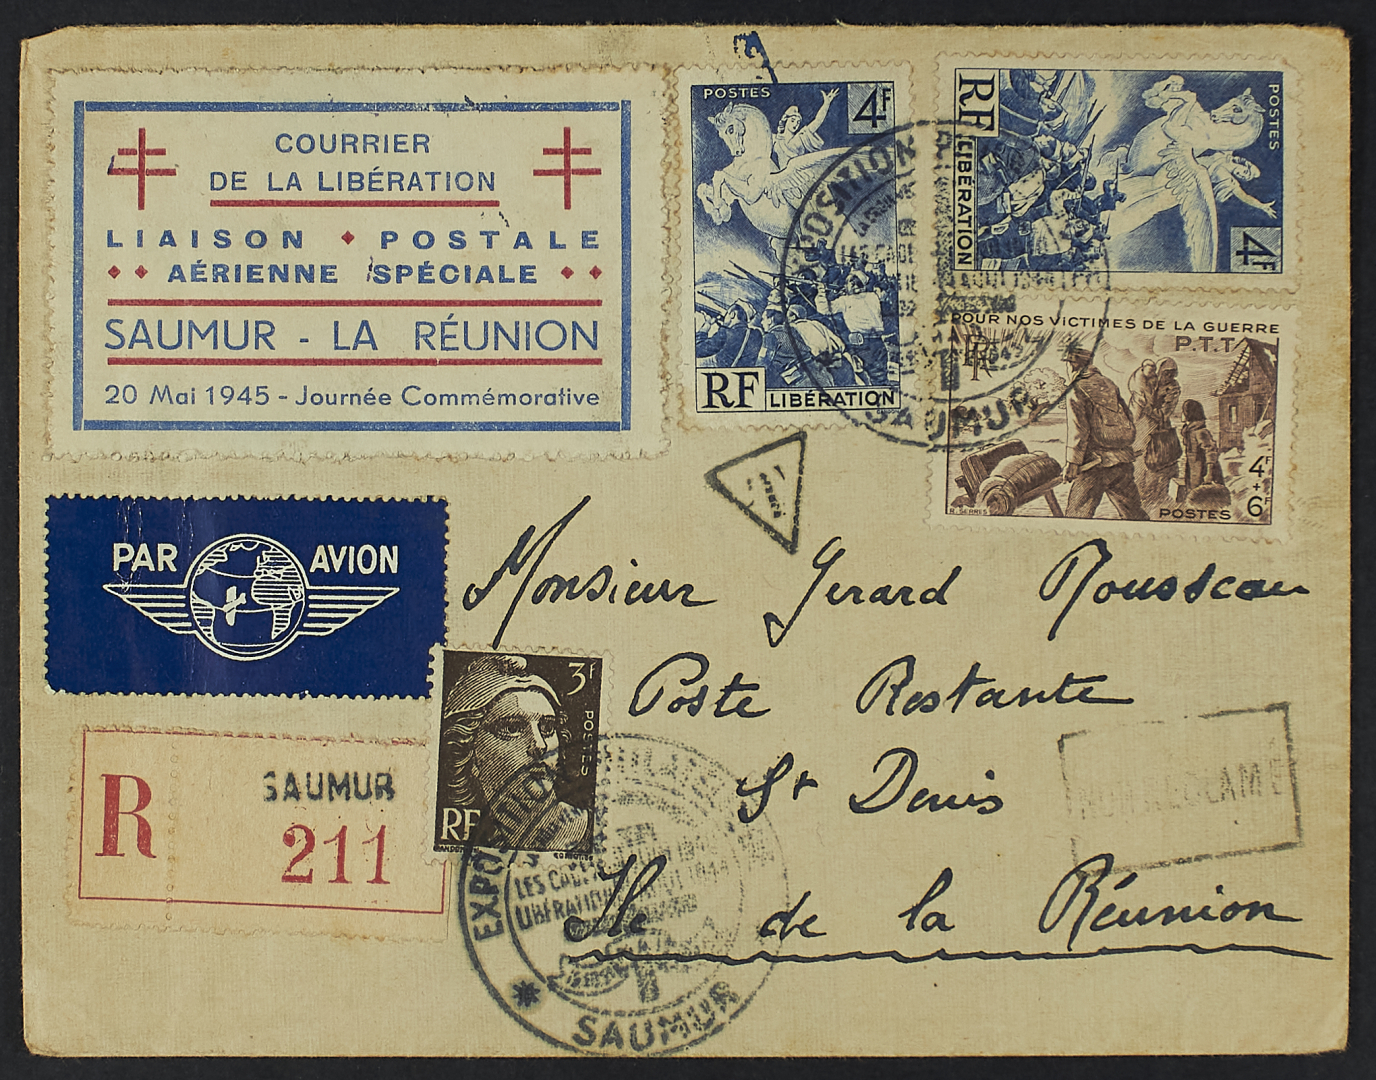 COURRIER
DE LA LIBÉRATION
LIAISON POSTALE
AÉRIENNE SPÉCIALE
SAUMUR - LA RÉUNION
20 Mai 1945 - Journée Commémorative
POSTES 4F
RF LIBÉRATION
POSTES
RF
LIBÉRATION
4F
EXPOSITION
SAUMUR
POUR NOS VICTIMES DE LA GUERRE
P.T.T
RF
4F
+
6F
POSTES
PAR AVION
Monsieur Gerard Rousseau
Poste Restante
St Denis
Ile de la Réunion
3F
POSTES
RF
R SAUMUR
211
EXPOSITION
LES CADETS
LIBÉRATION AOUT 1944
SAUMUR